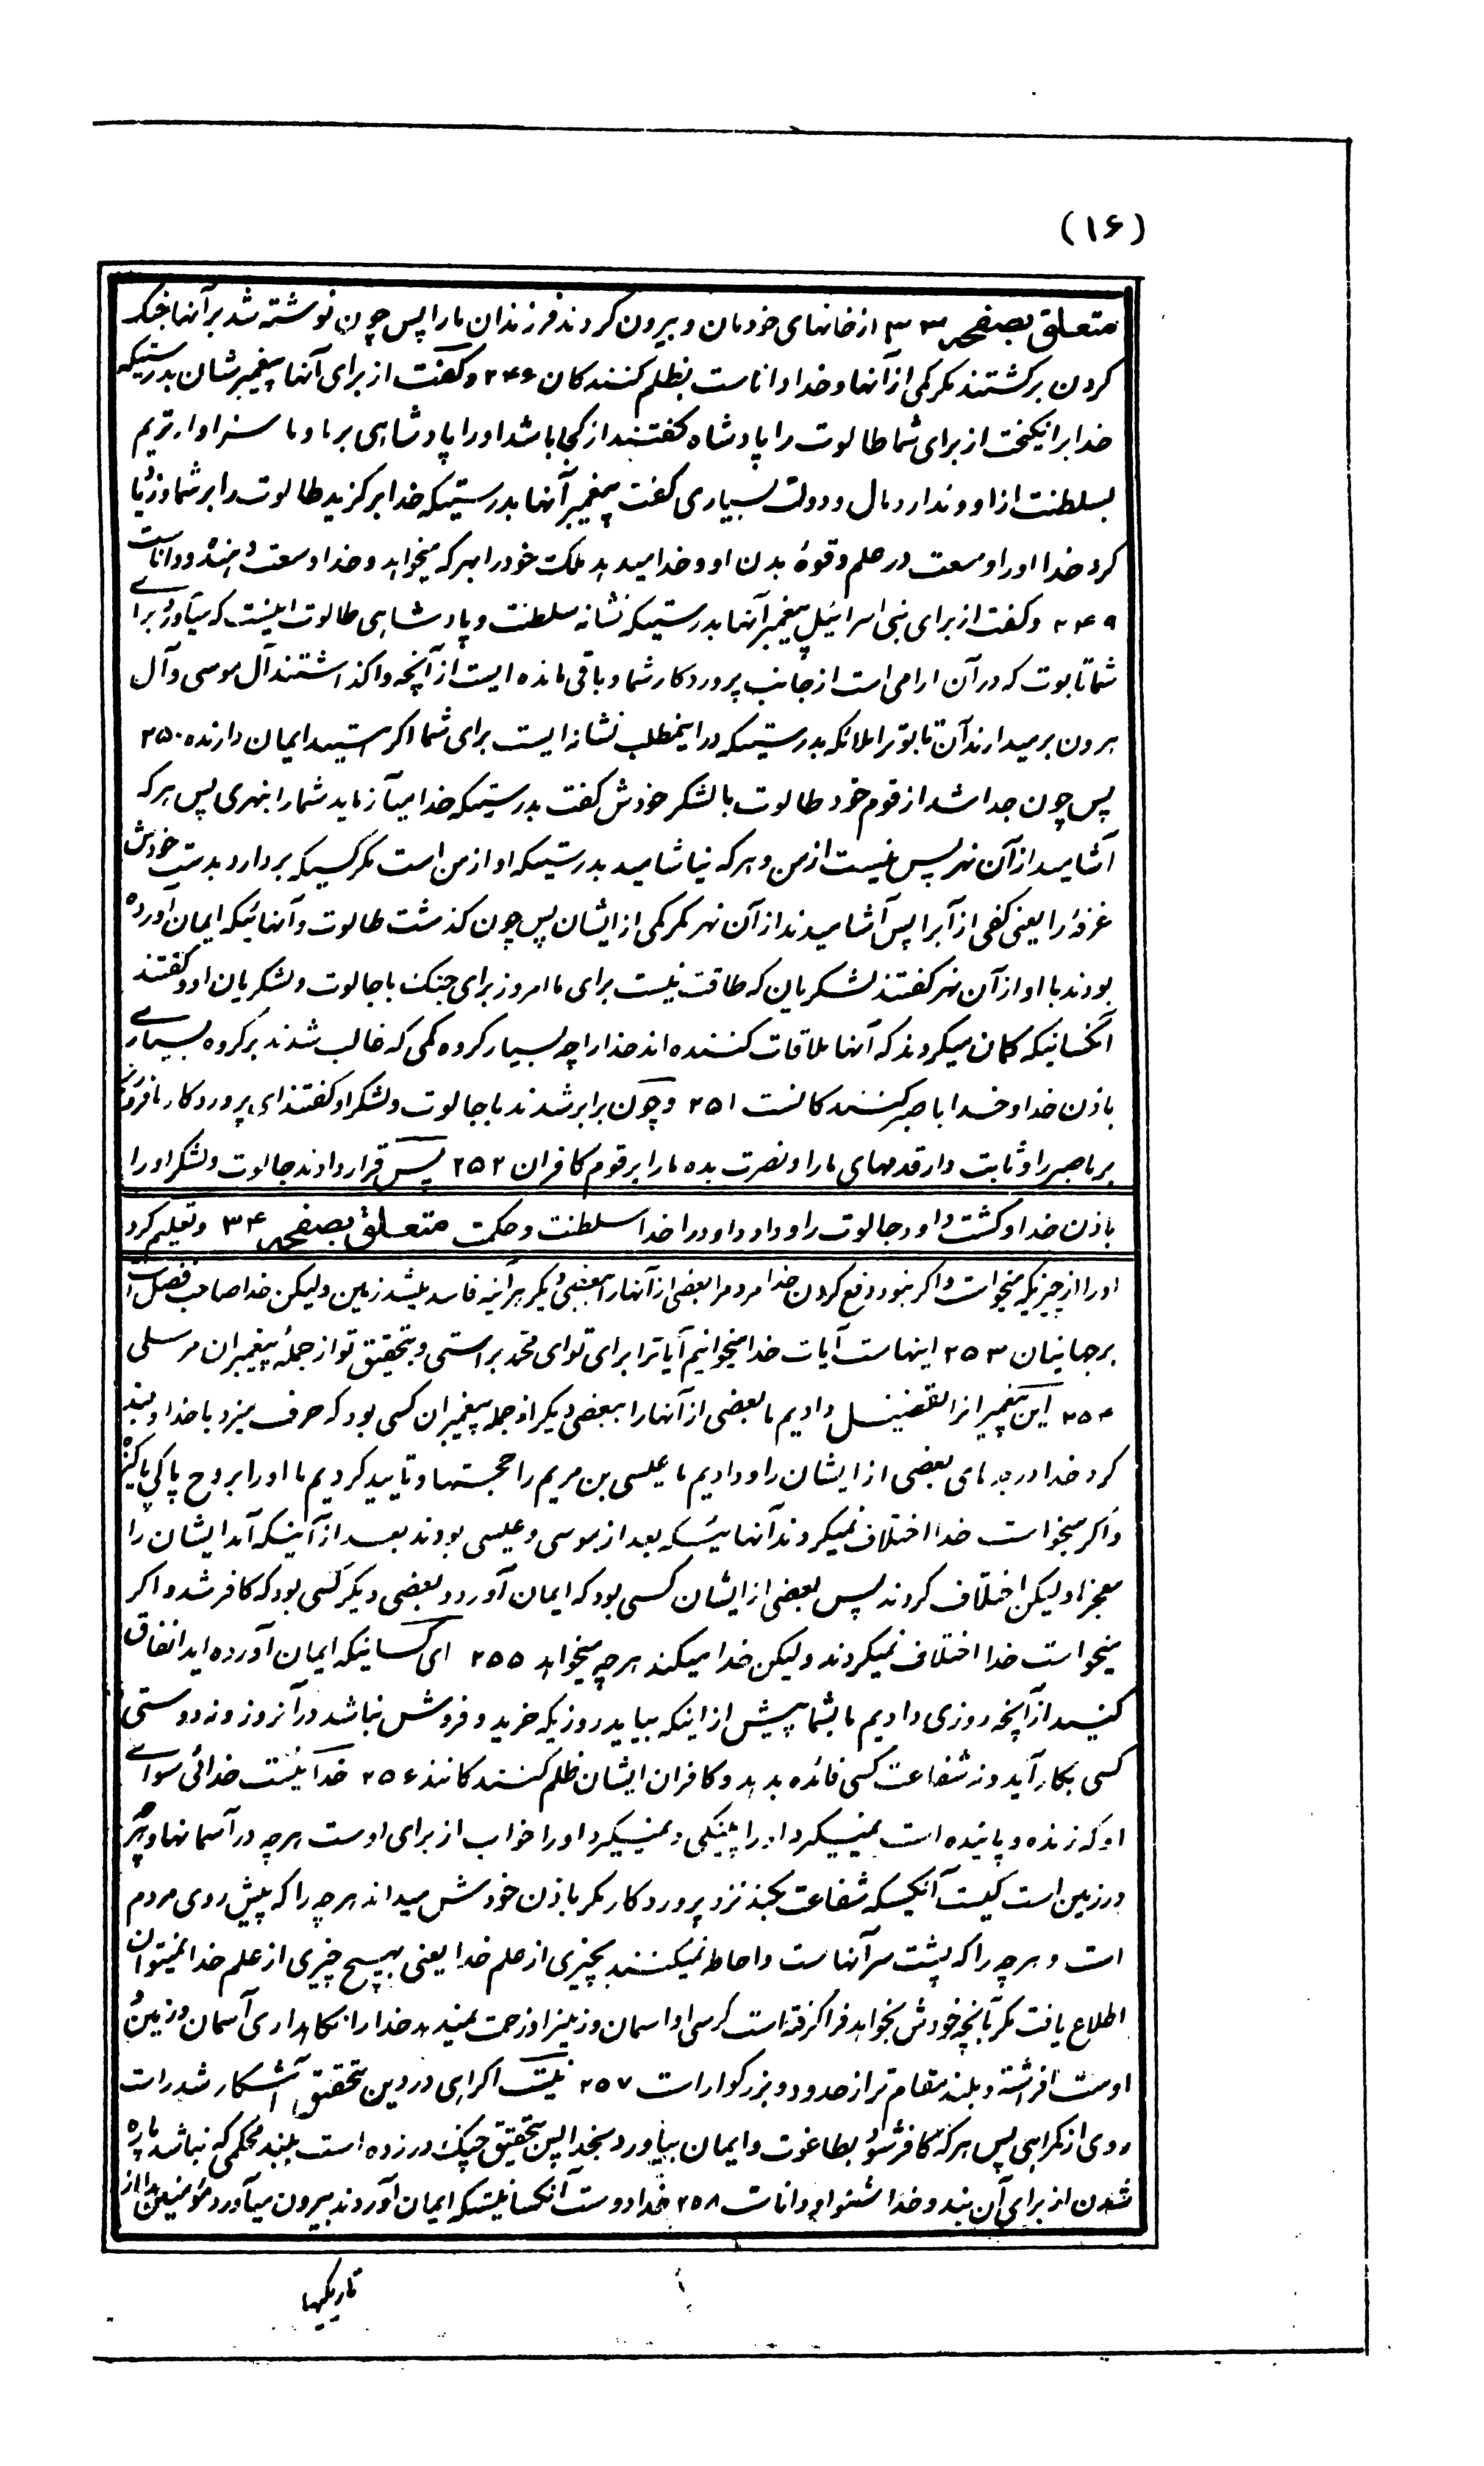 (۱۶)
متعلق بصفحه ۳۳ از خانهای خودمان و بیرون کردند فرزندان ما را پس چون نوشته شد بر آنها جنک
کردن برکشتند مکر کمی از آنها و خدا داناست بظلم کنندکان ۲۴۶ و کفت از برای آنها پیغمبرشان بدرستیکه
خدا برانیکخت از برای شما طالوت را پادشاه کفتند از کجا باشد او را پادشاهی بر ما و ما سزاوارتریم
بسلطنت از او و ندارد مال و دولت بسیاری کفت پیغمبر آنها بدرستیکه خدا برکزید طالوت را بر شما و زیاد
کرد خدا او را وسعت در علم و قوهٔ بدن او و خدا میدهد ملک خود را بهر که میخواهد و خدا وسعت دهنده و داناست
۲۴۹ و کفت از برای بنی اسرائیل پیغمبر آنها بدرستیکه نشانه سلطنت و پادشاهی طالوت اینست که میآورد برای
شما تابوت که در آن ارامی است از جانب پروردکار شما و باقی مانده ایست از آنچه واکذاشتند آل موسی و آل
هرون برمیدارند آن تابوترا ملائکه بدرستیکه در اینمطلب نشانه ایست برای شما اکر هستید ایمان دارنده ۲۵۰
پس چون جدا شد از قوم خود طالوت با لشکر خودش کفت بدرستیکه خدا میآزماید شما را بنهری پس هر که
آشامید از آن نهر پس نیست از من و هر که نیاشامید بدرستیکه او از من است مکر کسیکه بردارد بدست خودش
غرفهٔ را یعنی کفی از آبرا پس آشامیدند از آن نهر مکر کمی از ایشان پس چون کذشت طالوت و آنهائیکه ایمان آورده
بودند با او از آن نهر کفتند لشکریان که طاقت نیست برای ما امروز برای جنک با جالوت و لشکریان او و کفتند
انکسانیکه کمان میکردند که آنها ملاقات کننده اند خدا را چه بسیار کروه کمی که غالب شدند بر کروه بسیاری
باذن خدا و خدا با صبر کنندکانست ۲۵۱ و چون برابر شدند با جالوت و لشکر او کفتند ای پروردکار ما فروریز
بر ما صبر را و ثابت دار قدمهای ما را و نصرت بده ما را بر قوم کافران ۲۵۲ پس قرار دادند جالوت و لشکر او را
باذن خدا و کشت داود جالوت را و داد داود را خدا سلطنت و حکمت متعلق بصفحه ۳۴ و تعلیم کرد
او را از چیزیکه میخواست و اکر نبود دفع کردن خدا مردم را بعضی از آنها را ببعضی دیکر هرآینه فاسد میشد زمین ولیکن خدا صاحب فضل است
بر جهانیان ۲۵۳ اینهاست آیات خدا میخوانیم آیاترا برای تو ای محمد براستی و بتحقیق تو از جملهٔ پیغمبران مرسلی
۲۵۴ این پیغمبرانرا تفضیل دادیم ما بعضی از آنها را ببعضی دیکر از جمله پیغمبران کسی بود که حرف میزد با خدا و بلند
کرد خدا درجه های بعضی از ایشان را و دادیم ما عیسی بن مریم را حجتها و تایید کردیم ما او را بروح پاکی پاکیزه
و اکر میخواست خدا اختلاف نمیکردند آنهائیکه بعد از موسی و عیسی بودند بعد از آینکه آمد ایشان را
معجزها ولیکن اختلاف کردند پس بعضی از ایشان کسی بود که ایمان آورد و بعضی دیکر کسی بود که کافر شد و اکر
میخواست خدا اختلاف نمیکردند ولیکن خدا میکند هرچه میخواهد ۲۵۵ ای کسانیکه ایمان آورده اید انفاق
کنید از آنچه روزی دادیم ما بشما پیش از اینکه بیاید روزیکه خرید و فروش نباشد در آنروز و نه دوستی
کسی بکار آید و نه شفاعت کسی فائده بدهد و کافران ایشان ظلم کنندکانند ۲۵۶ خدا نیست خدائی سوای
او که زنده و پاینده است نمیکیرد او را پینکی و نمیکیرد او را خواب از برای اوست هرچه در آسمانها و هرچه
در زمین است کیست آنکسیکه شفاعت بکند نزد پروردکار مکر باذن خودش میداند هرچه را که پیش روی مردم
است و هرچه را که پشت سر آنهاست و احاطه نمیکنند بچیزی از علم خدا یعنی بهیچ چیزی از علم خدا نمیتوان
اطلاع یافت مکر بآنچه خودش بخواهد فراکرفته است کرسی او اسمان و زمینرا و زحمت نمیدهد خدا را نکاهداری آسمان و زمین و
اوست افراشته و بلند مقام تر از حدود و بزرکوار است ۲۵۷ نیست اکراهی در دین بتحقیق آشکار شد راست
روی از کمراهی پس هر که کافر شود بطاغوت و ایمان بیاورد بخدا پس بتحقیق چنک در زده است ببند محکمی که نباشد پاره
شدن از برای آن بند و خدا شنوا و داناست ۲۵۸ خدا دوست آنکسانیستکه ایمان آوردند بیرون میآورد مؤمنین را از
تاریکیها